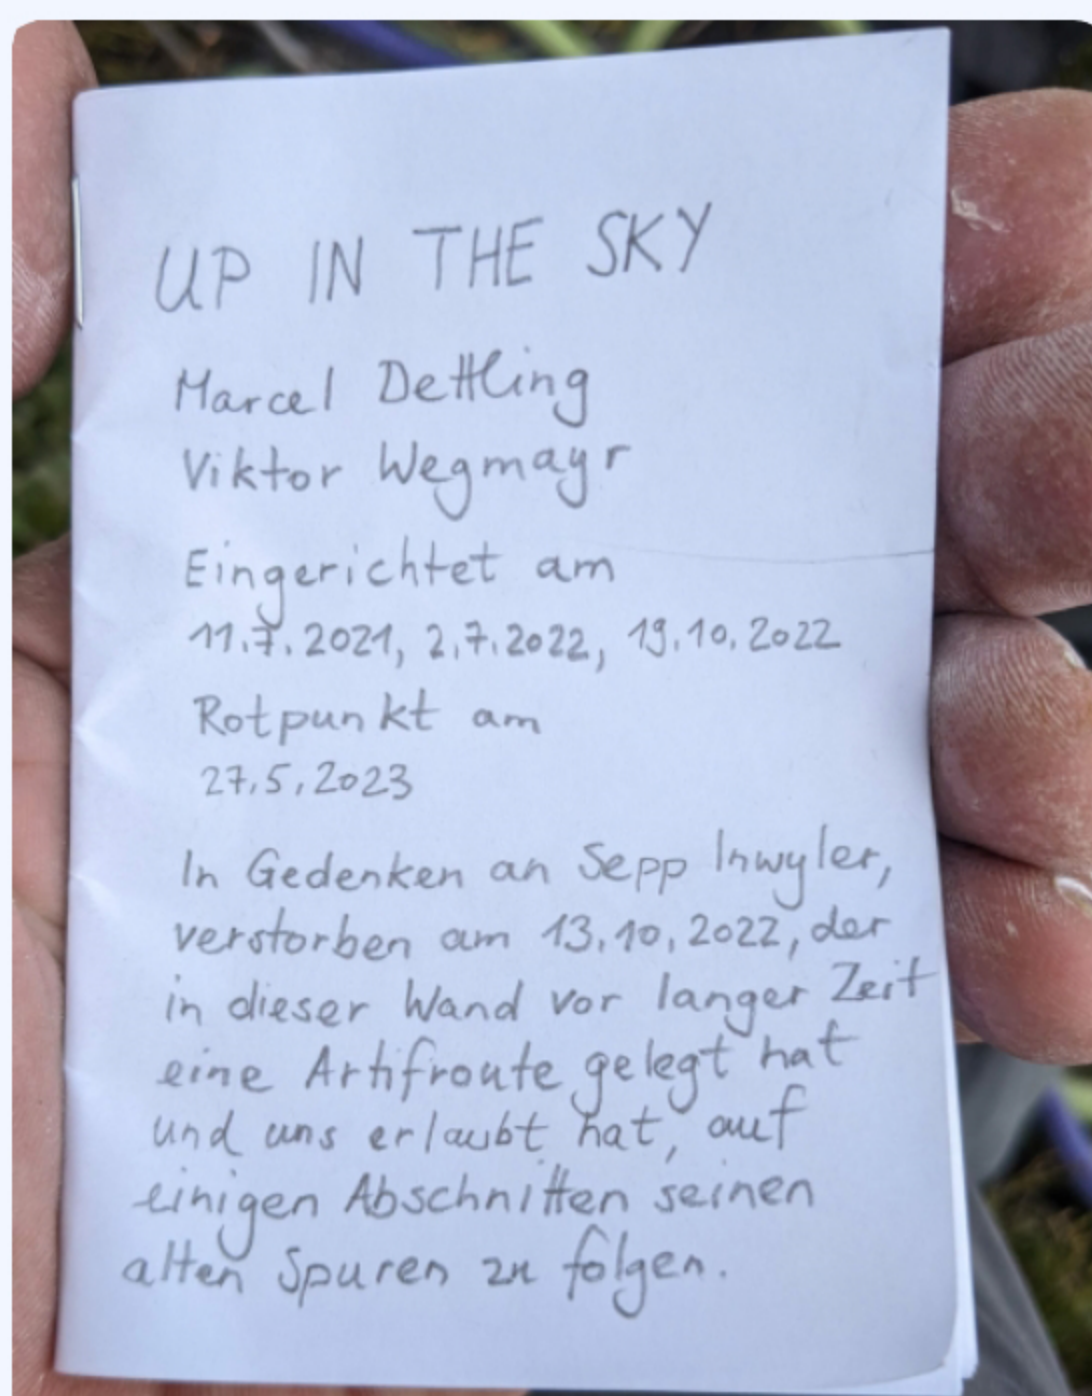 UP IN THE SKY
Marcel Dettling
Viktor Wegmayr
Eingerichtet am
11.7.2021, 2.7.2022, 19.10.2022
Rotpunkt am
27.5.2023
In Gedenken an Sepp Inwyler,
verstorben am 13.10.2022, der
in dieser Wand vor langer Zeit
eine Artifroute gelegt hat
und uns erlaubt hat, auf
einigen Abschnitten seinen
alten Spuren zu folgen.